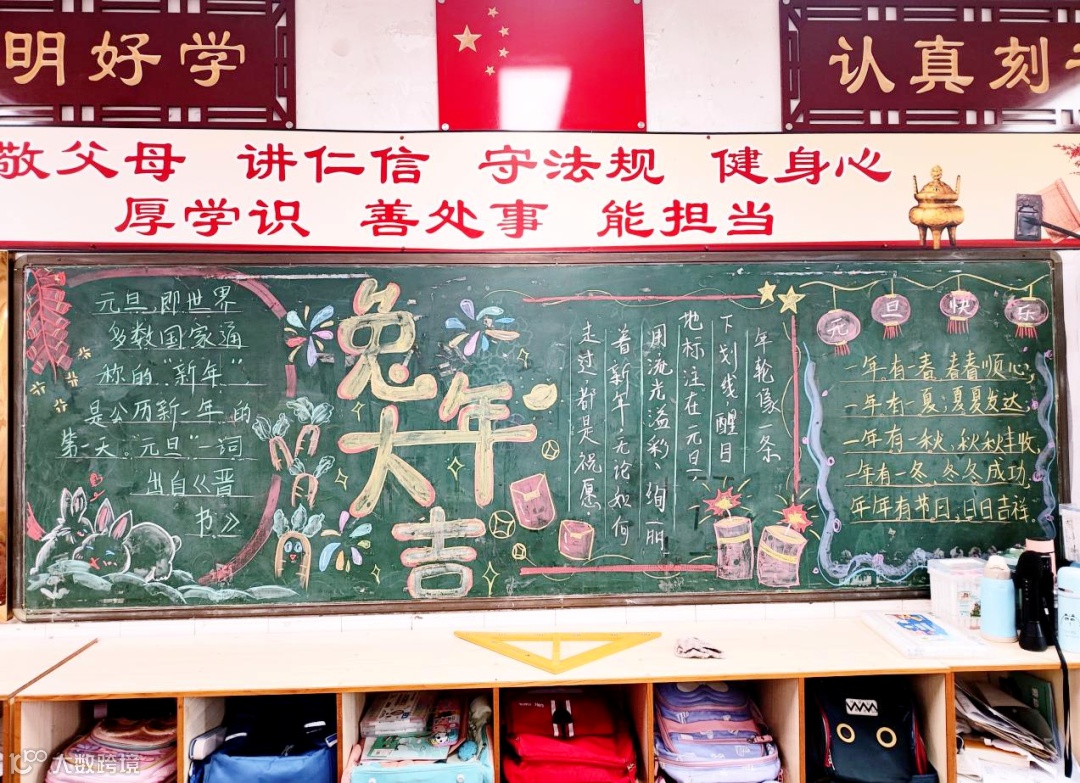 明好学
认真刻
敬父母 讲仁信 守法规 健身心
厚学识 善处事 能担当
元旦,即世界
多数国家通
称的“新年”.
是公历新一年的
第一天。“元旦”一词
出自《晋
书》
兔
年
大
吉
年轮像一条
下划线醒目
地标注在元旦,
用流光溢彩、绚丽
着新年,无论如何
走过,都是祝愿
元旦快乐
一年有一春,春春顺心,
一年有一夏;夏夏发达,
一年有一秋,秋秋丰收,
一年有一冬,冬冬成功,
年年有节日,日日吉祥.
大数跨境